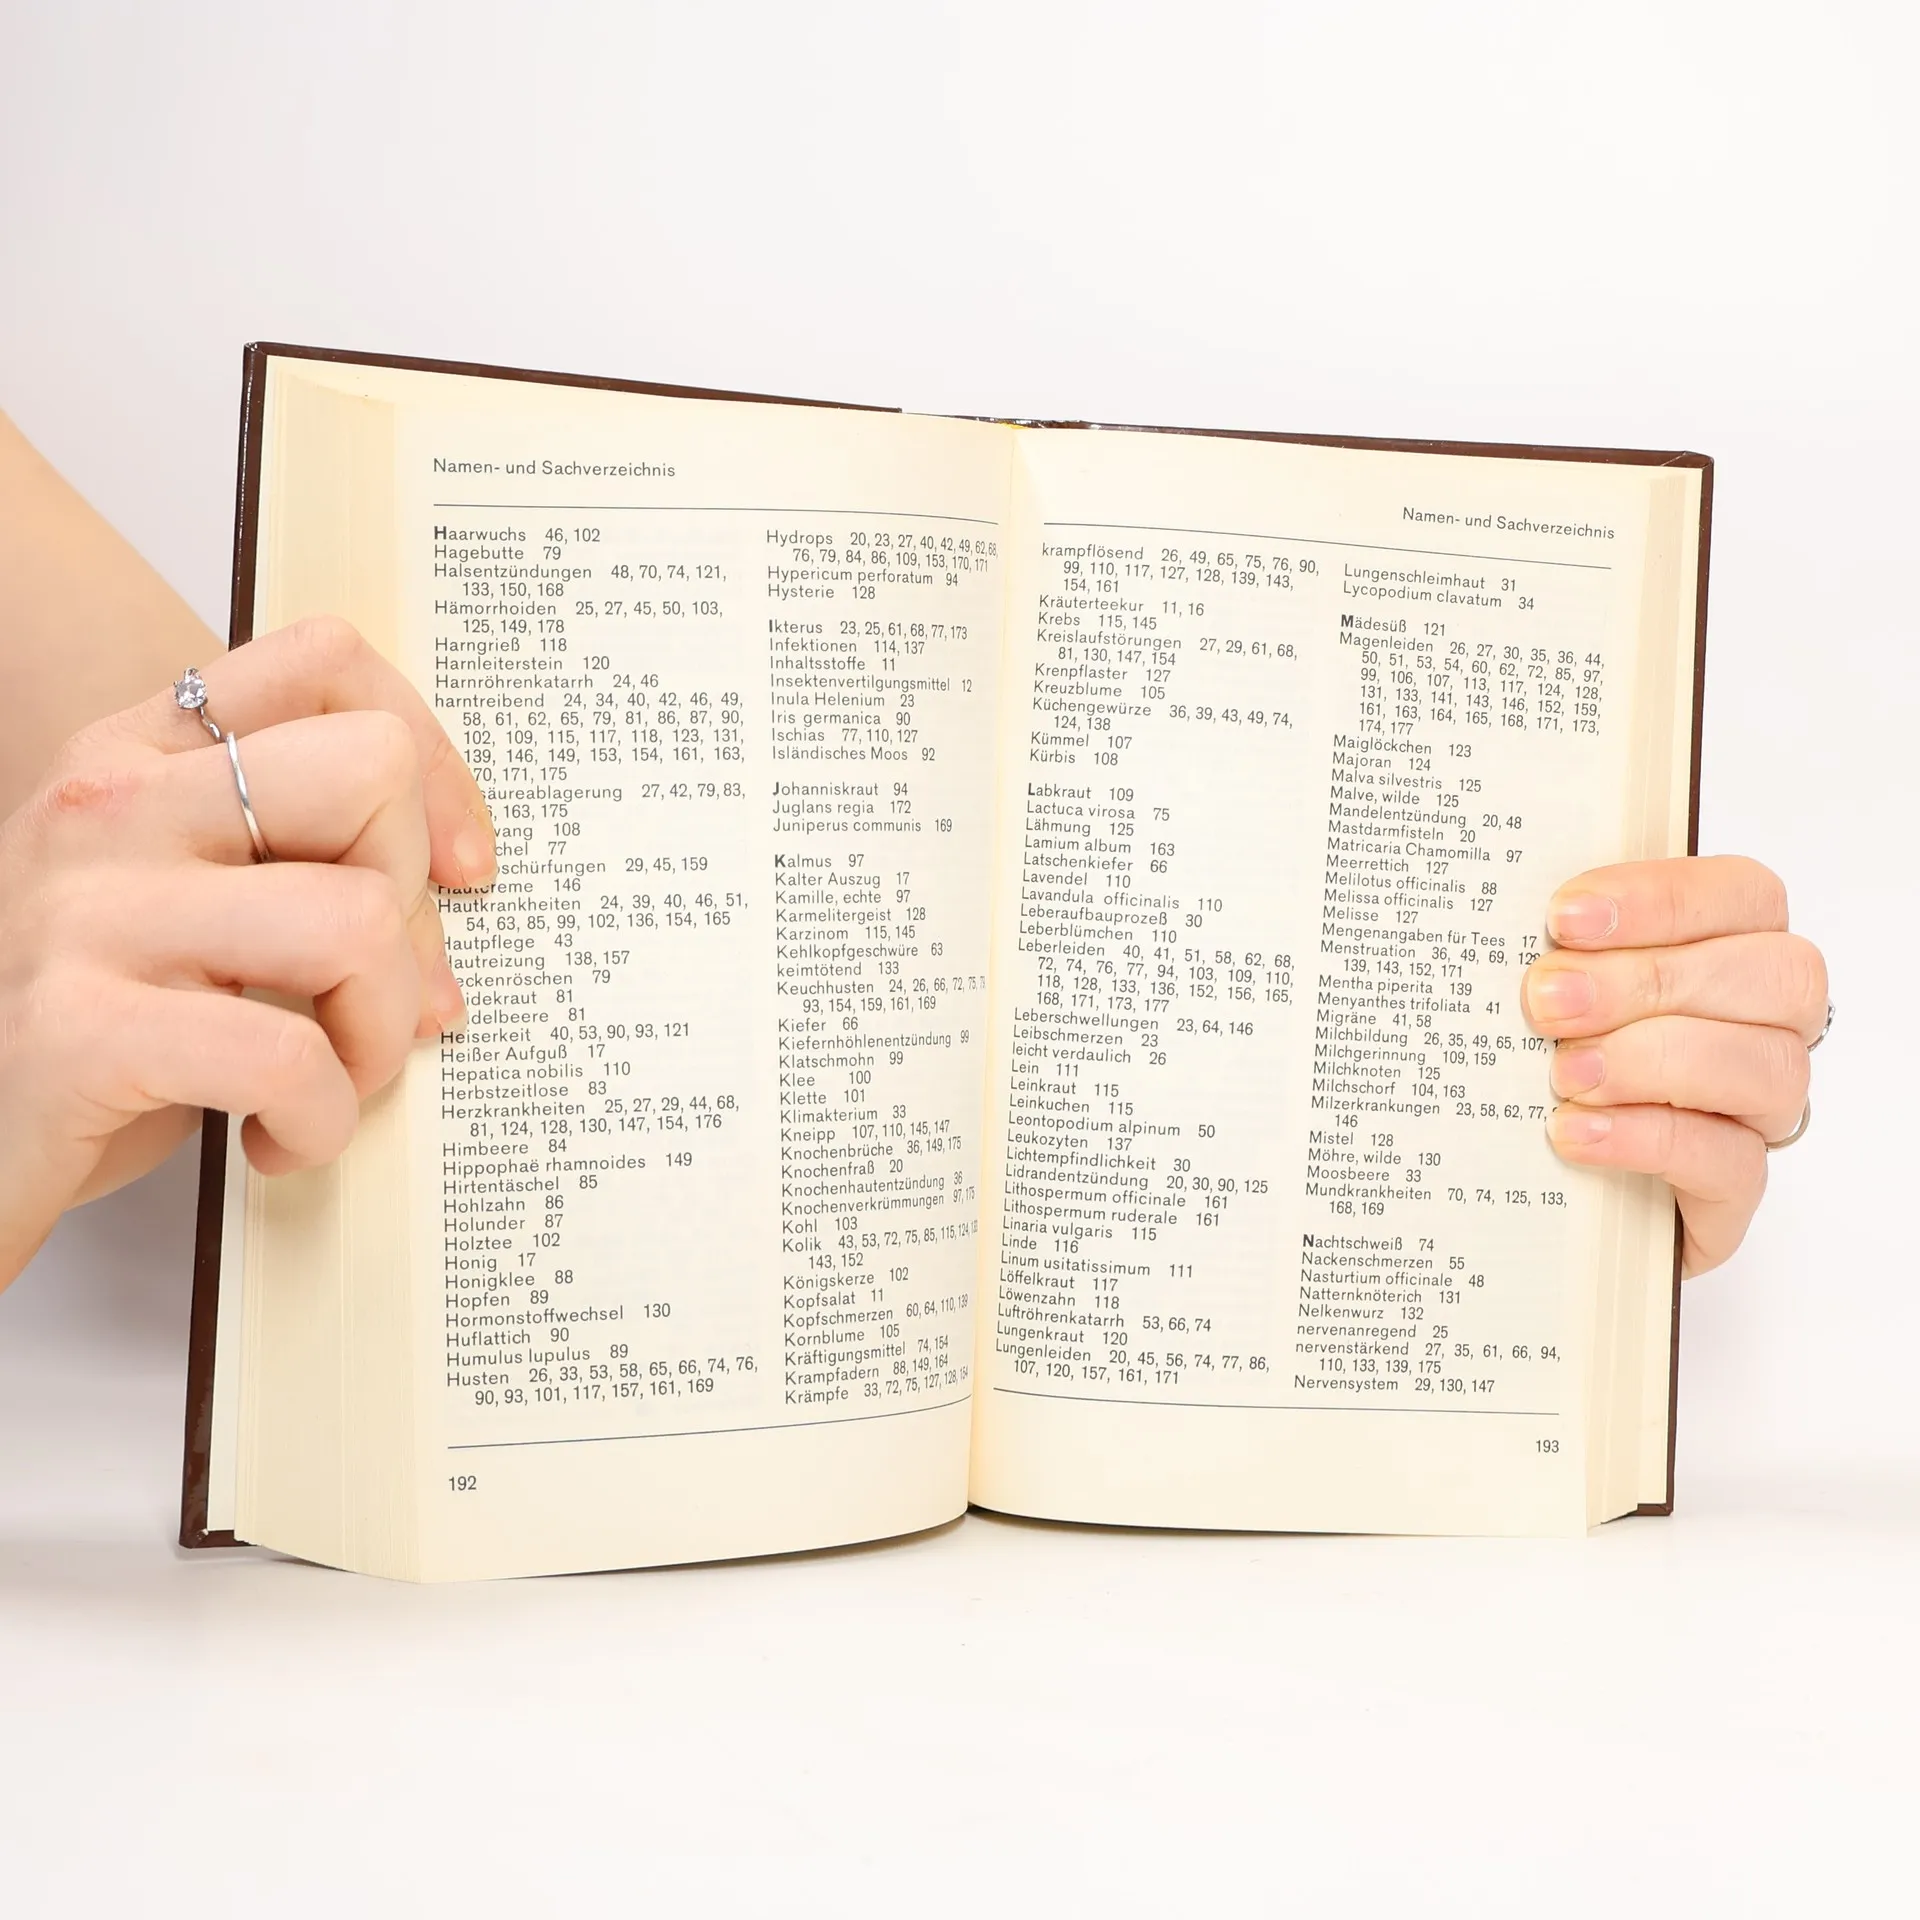 Namen- und Sachverzeichnis
Haarwuchs 46, 102
Hagebutte 79
Halsentzündungen 48, 70, 74, 121,
133, 150, 168
Hämorrhoiden 25, 27, 45, 50, 103,
125, 149, 178
Harngrieß 118
Harnleiterstein 120
Harnröhrenkatarrh 24, 46
harntreibend 24, 34, 40, 42, 46, 49,
58, 61, 62, 65, 79, 81, 86, 87, 90,
102, 109, 115, 117, 118, 123, 131,
139, 146, 149, 153, 154, 161, 163,
70, 171, 175
säureablagerung 27, 42, 79, 83,
163, 175
wang 108
chel 77
schürfungen 29, 45, 159
Hautcreme 146
Hautkrankheiten 24, 39, 40, 46, 51,
54, 63, 85, 99, 102, 136, 154, 165
Hautpflege 43
Hautreizung 138, 157
eckenröschen 79
idekraut 81
idelbeere 81
Heiserkeit 40, 53, 90, 93, 121
Heißer Aufguß 17
Hepatica nobilis 110
Herbstzeitlose 83
Herzkrankheiten 25, 27, 29, 44, 68,
81, 124, 128, 130, 147, 154, 176
Himbeere 84
Hippophaë rhamnoides 149
Hirtentäschel 85
Hohlzahn 86
Holunder 87
Holztee 102
Honig 17
Honigklee 88
Hopfen 89
Hormonstoffwechsel 130
Huflattich 90
Humulus lupulus 89
Husten 26, 33, 53, 58, 65, 66, 74, 76,
90, 93, 101, 117, 157, 161, 169
Hydrops 20, 23, 27, 40, 42, 49, 62, 68,
76, 79, 84, 86, 109, 153, 170, 171
Hypericum perforatum 94
Hysterie 128
Ikterus 23, 25, 61, 68, 77, 173
Infektionen 114, 137
Inhaltsstoffe 11
Insektenvertilgungsmittel 12
Inula Helenium 23
Iris germanica 90
Ischias 77, 110, 127
Isländisches Moos 92
Johanniskraut 94
Juglans regia 172
Juniperus communis 169
Kalmus 97
Kalter Auszug 17
Kamille, echte 97
Karmelitergeist 128
Karzinom 115, 145
Kehlkopfgeschwüre 63
keimtötend 133
Keuchhusten 24, 26, 66, 72, 75,
93, 154, 159, 161, 169
Kiefer 66
Kiefernhöhlenentzündung 99
Klatschmohn 99
Klee 100
Klette 101
Klimakterium 33
Kneipp 107, 110, 145, 147
Knochenbrüche 36, 149, 175
Knochenfraß 20
Knochenhautentzündung 36
Knochenverkrümmungen 97, 175
Kohl 103
Kolik 43, 53, 72, 75, 85, 115, 124,
143, 152
Königskerze 102
Kopfsalat 11
Kopfschmerzen 60, 64, 110, 139
Kornblume 105
Kräftigungsmittel 74, 154
Krampfadern 88, 149, 164
Krämpfe 33, 72, 75, 127, 128, 154
192
Namen- und Sachverzeichnis
krampflösend 26, 49, 65, 75, 76, 90,
99, 110, 117, 127, 128, 139, 143,
154, 161
Kräuterteekur 11, 16
Krebs 115, 145
Kreislaufstörungen 27, 29, 61, 68,
81, 130, 147, 154
Krenpflaster 127
Kreuzblume 105
Küchengewürze 36, 39, 43, 49, 74,
124, 138
Kümmel 107
Kürbis 108
Labkraut 109
Lactuca virosa 75
Lähmung 125
Lamium album 163
Latschenkiefer 66
Lavendel 110
Lavandula officinalis 110
Leberaufbauprozeß 30
Leberblümchen 110
Leberleiden 40, 41, 51, 58, 62, 68,
72, 74, 76, 77, 94, 103, 109, 110,
118, 128, 133, 136, 152, 156, 165,
168, 171, 173, 177
Leberschwellungen 23, 64, 146
Leibschmerzen 23
leicht verdaulich 26
Lein 111
Leinkraut 115
Leinkuchen 115
Leontopodium alpinum 50
Leukozyten 137
Lichtempfindlichkeit 30
Lidrandentzündung 20, 30, 90, 125
Lithospermum officinale 161
Lithospermum ruderale 161
Linaria vulgaris 115
Linde 116
Linum usitatissimum 111
Löffelkraut 117
Löwenzahn 118
Luftröhrenkatarrh 53, 66, 74
Lungenkraut 120
Lungenleiden 20, 45, 56, 74, 77, 86,
107, 120, 157, 161, 171
Lungenschleimhaut 31
Lycopodium clavatum 34
Mädesüß 121
Magenleiden 26, 27, 30, 35, 36, 44,
50, 51, 53, 54, 60, 62, 72, 85, 97,
99, 106, 107, 113, 117, 124, 128,
131, 133, 141, 143, 146, 152, 159,
161, 163, 164, 165, 168, 171, 173,
174, 177
Maiglöckchen 123
Majoran 124
Malva silvestris 125
Malve, wilde 125
Mandelentzündung 20, 48
Mastdarmfisteln 20
Matricaria Chamomilla 97
Meerrettich 127
Melilotus officinalis 88
Melissa officinalis 127
Melisse 127
Mengenangaben für Tees 17
Menstruation 36, 49, 69,
139, 143, 152, 171
Mentha piperita 139
Menyanthes trifoliata 41
Migräne 41, 58
Milchbildung 26, 35, 49, 65, 107,
Milchgerinnung 109, 159
Milchknoten 125
Milchschorf 104, 163
Milzerkrankungen 23, 58, 62, 77,
146
Mistel 128
Möhre, wilde 130
Moosbeere 33
Mundkrankheiten 70, 74, 125, 133,
168, 169
Nachtschweiß 74
Nackenschmerzen 55
Nasturtium officinale 48
Natternknöterich 131
Nelkenwurz 132
nervenanregend 25
nervenstärkend 27, 35, 61, 66, 94,
110, 133, 139, 175
Nervensystem 29, 130, 147
193